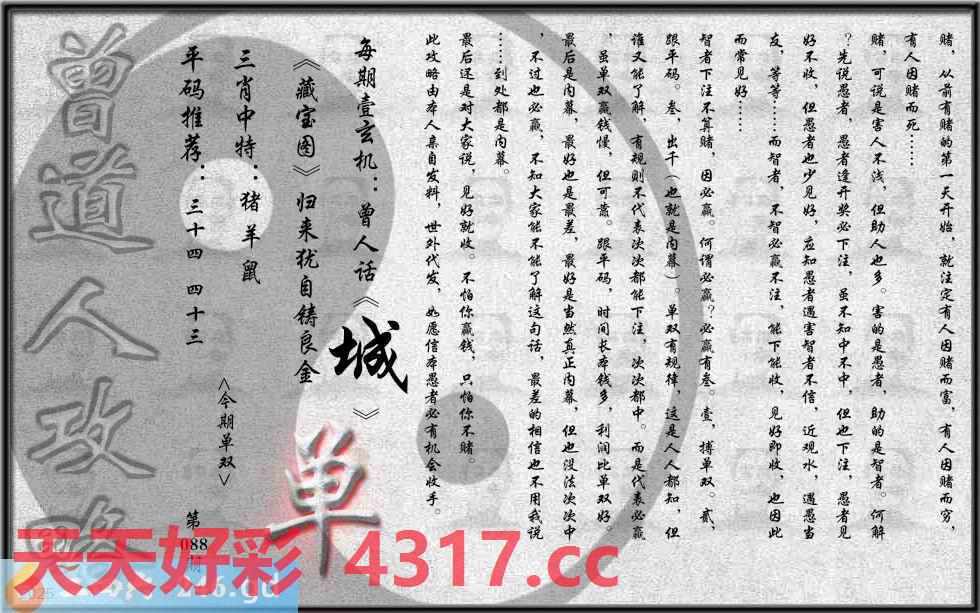 赌，从前有赌的第一天开始，就注定有人因赌而富，有人因赌而穷，
有人因赌而死……
赌，可说是害人不浅，但助人也多。害的是愚者，助的是智者。何解
？先说愚者，愚者逢开奖必下注，虽不知中不中，但也下注，愚者见
好不收，但愚者也少见好，应知愚者遇害智者不信，近观水，遇愚当
友，等等……而智者，不智必赢不注，能下能收，见好即收，也因此
而常见好……
智者下注不算赌，因必赢。何谓必赢？必赢有叁。壹，搏单双。贰，
跟平码。叁，出千（也就是内幕）。单双有规律，这是人人都知，但
谁又能了解，有规则不代表次次都能下注，次次都中。而是代表必赢
，虽单双赢钱慢，但可靠。跟平码，时间长本钱多，利润比单双好。
最后是内幕，最好也是最差，最好是当然真正内幕，但也没法次次中
，不过也必赢，不知大家能不能了解这句话，最差的相信也不用我说
……到处都是内幕。
最后还是对大家说，见好就收。不怕你赢钱，只怕你不赌。
此攻略由本人亲自发料，世外代发，如愿信本愚者必有机会收手。
每期壹玄机：曾人话《城》
《藏宝图》归来犹自铸良金
单
三肖中特：猪羊鼠
<今期单双>
平码推荐：三十四 四十三
第
088
期
曾道人攻略
天天好彩 4317.cc
2025
246.gd